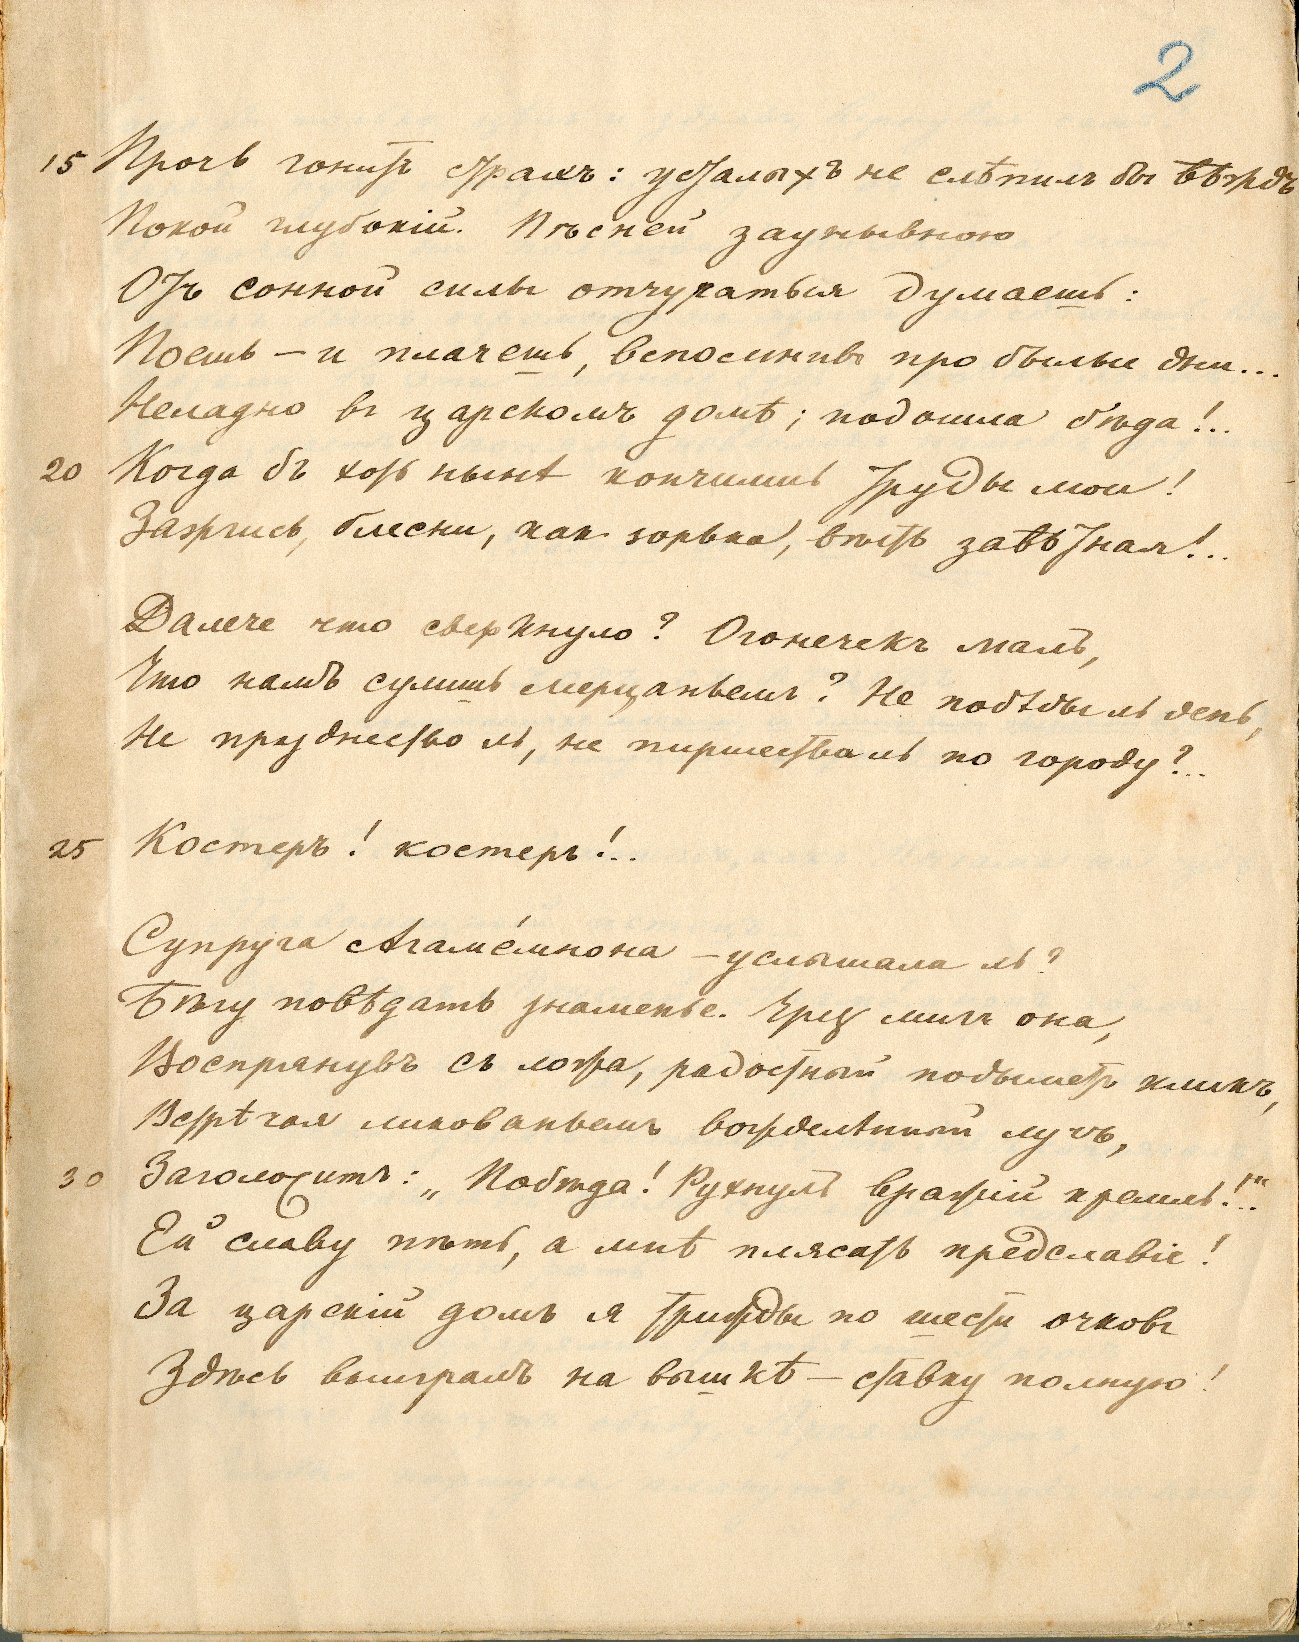 2
15 Прочь гонитъ страхъ: усталыхъ не слѣпилъ бы вѣждъ
Покой глубокій. Пѣсней заунывною
Отъ сонной силы отчураться думаешь:
Поешь – и плачешь, вспомнивъ про былые дни...
Неладно въ царскомъ домѣ; подошла бѣда!..
20 Когда бъ хоть нынѣ кончились труды мои!
Зажгись, блесни, какъ зорька, вѣсть завѣтная!..
Далече что сверкнуло? Огонечекъ малъ,
Что намъ сулишь мерцаньемъ? Не побѣды ль день,
Не празднество ль, не пиршества ль по городу?..
25 Костеръ! костеръ!..
Супруга Агаме́мнона – услышала ль?
Бѣгу повѣдать знаменье. Чрез мигъ она,
Воспрянувъ съ ложа, радостный подыметъ кликъ,
Встрѣчая ликованьемъ вожделѣнный лучъ,
30 Заголоситъ: „Побѣда! Рухнулъ вражій кремль!.."
Ей славу пѣть, а мнѣ плясать предславіе!
За царскій домъ я трижды по шести очковъ
Здѣсь выигралъ на вышкѣ – ставку полную!